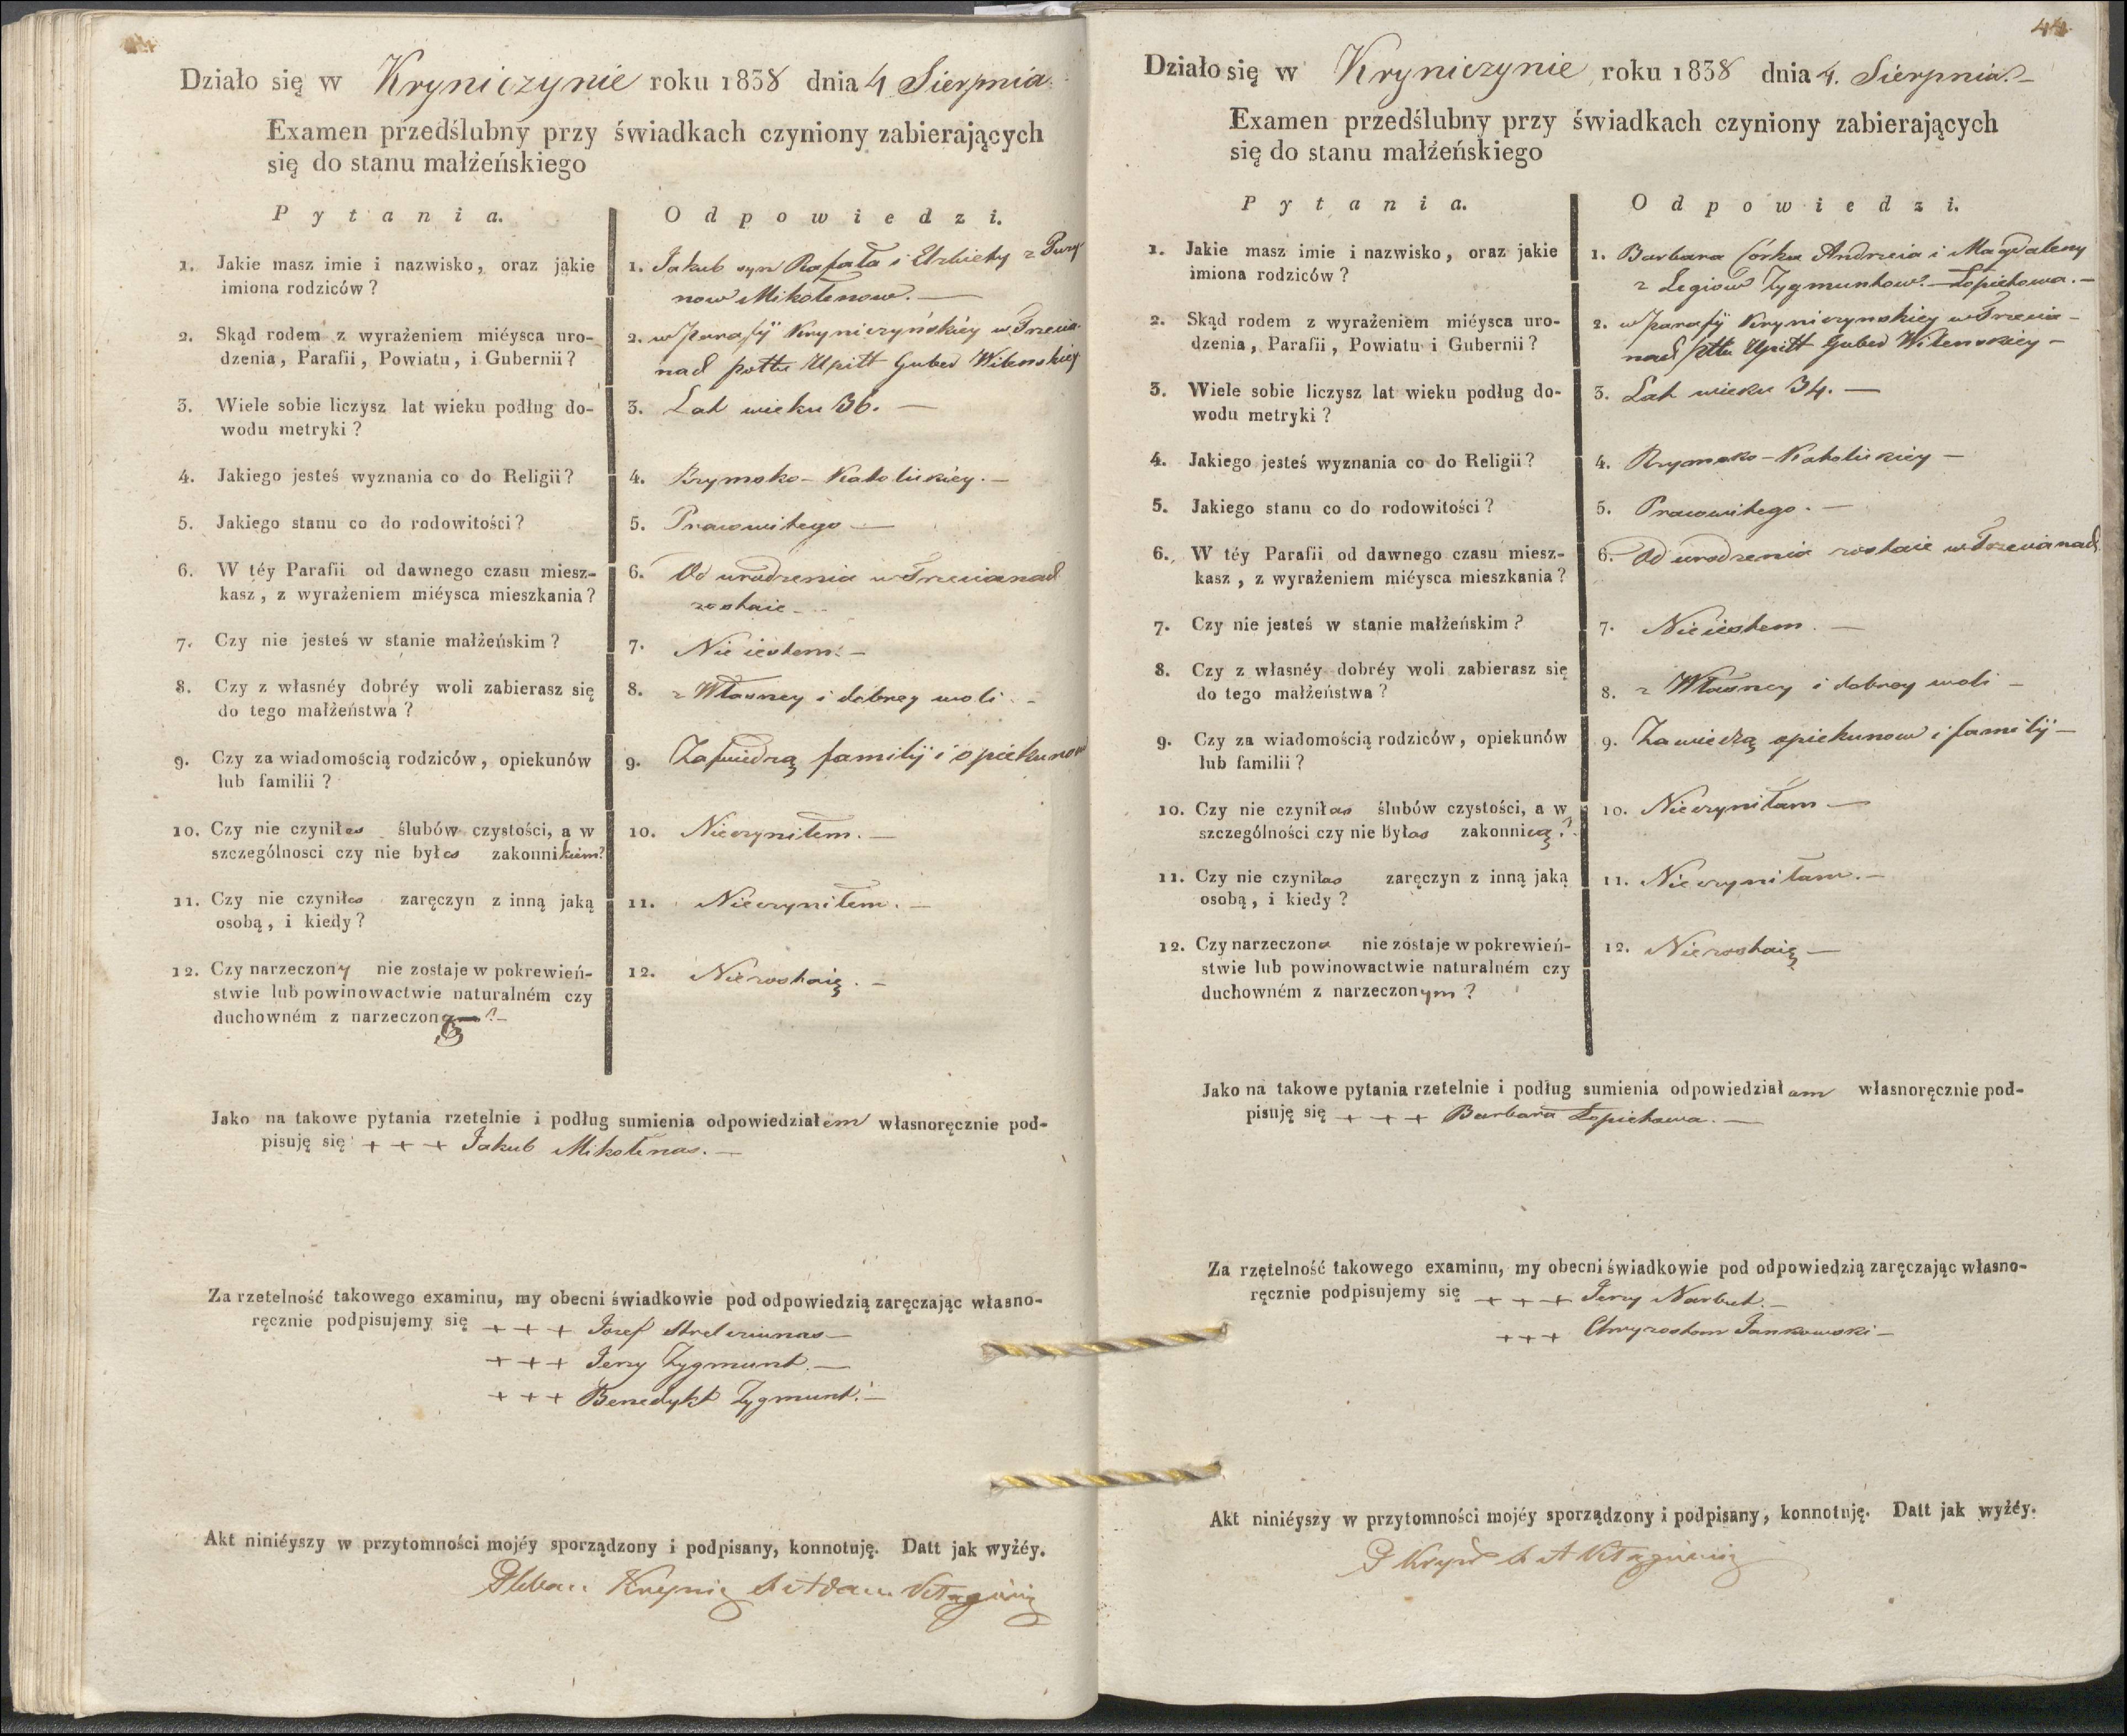 Działo się w Kryniczynie roku 1838 dnia 4 Sierpnia
Examen przedślubny przy świadkach czyniony zabierających
się do stanu małżeńskiego
Pytania.
Odpowiedzi.
1. Jakie masz imie i nazwisko, oraz jakie
imiona rodziców?
1. Jakub syn Rafała i Elzbiety z
now Mikołenow. —
2. Skąd rodem z wyrażeniem miéysca uro-
dzenia, Parafii, Powiatu, i Gubernii?
2. w Parafÿ Kryniczyńskiéy w Trzecia
nad pottu Upitt Guber Wilenskiey
3. Wiele sobie liczysz lat wieku podług do-
wodu metryki?
3. Lat wieku 36. —
4. Jakiego jesteś wyznania co do Religii?
4. Rzymsko-Katolickiéy. —
5. Jakiego stanu co do rodowitości?
5. Pracowitego —
6. W téy Parafii od dawnego czasu miesz-
kasz, z wyrażeniem miéysca mieszkania?
6. Od urodzenia w Trzecianad
zostaie —
7. Czy nie jesteś w stanie małżeńskim?
7. Nie iestem. —
8. Czy z własnéy dobréy woli zabierasz się
do tego małżeństwa?
8. z Własney i dobrey woli. —
9. Czy za wiadomością rodziców, opiekunów
lub familii?
9. familÿ i opiekunow
10. Czy nie czyniłes ślubów czystości, a w
szczególnosci czy nie byłes zakonnikiem?
10. Nieczyniłem. —
11. Czy nie czyniłes zaręczyn z inną jaką
osobą, i kiedy?
11. Nieczyniłem. —
12. Czy narzeczony nie zostaje w pokrewień-
stwie lub powinowactwie naturalném czy
duchowném z narzeczoną?—
12. Niezostaię. —
Jako na takowe pytania rzetelnie i podług sumienia odpowiedziałem własnoręcznie pod-
pisuję się + + + Jakub Mikołenas. —
Za rzetelność takowego examinu, my obecni świadkowie pod odpowiedzią zaręczając własno-
ręcznie podpisujemy się + + + Jozef —
+ + + Jerzy Zygmunt. —
+ + + Benedykt Zygmunt. —
Akt niniéyszy w przytomności mojéy sporządzony i podpisany, konnotuję. Datt jak wyżéy.
Pleban
44.
Działo się w Kryniczynie roku 1838 dnia 4. Sierpnia. —
Examen przedślubny przy świadkach czyniony zabierających
się do stanu małżeńskiego
Pytania.
Odpowiedzi.
1. Jakie masz imie i nazwisko, oraz jakie
imiona rodziców?
1. Barbara Córka Andrzeia i Magdaleny
z Zygmuntow. — Łopiehowa. —
2. Skąd rodem z wyrażeniem miéysca uro-
dzenia, Parafii, Powiatu i Gubernii?
2. w Parafÿ Kryniczynskiey w Trzecia-
nad pttu Upitt Guber Wilenskiey —
3. Wiele sobie liczysz lat wieku podług do-
wodu metryki?
3. Lat wieku 34. —
4. Jakiego jesteś wyznania co do Religii?
4. Rzymsko-Katolickiey —
5. Jakiego stanu co do rodowitości?
5. Pracowitego. —
6. W téy Parafii od dawnego czasu miesz-
kasz, z wyrażeniem miéysca mieszkania?
6. Od urodzenia zostaie w Trzecianad
7. Czy nie jesteś w stanie małżeńskim?
7. Nieiestem. —
8. Czy z własnéy dobréy woli zabierasz się
do tego małżeństwa?
8. z Własney i dobrey woli —
9. Czy za wiadomością rodziców, opiekunów
lub familii?
9. Zawiedzą opiekunow i familÿ —
10. Czy nie czyniłas ślubów czystości, a w
szczególności czy nie byłas zakonnicą?
10. Nieczyniłam —
11. Czy nie czyniłas zaręczyn z inną jaką
osobą, i kiedy?
11. Nieczyniłam. —
12. Czy narzeczona nie zostaje w pokrewień-
stwie lub powinowactwie naturalném czy
duchowném z narzeczonym?
12. Niezostaię —
Jako na takowe pytania rzetelnie i podług sumienia odpowiedziałam własnoręcznie pod-
pisuję się + + + Barbara Łopiehowa. —
Za rzętelność takowego examinu, my obecni świadkowie pod odpowiedzią zaręczając własno-
ręcznie podpisujemy się + + + Jerzy Narbut. —
+ + + Chryzostom Jankowski —
Akt niniéyszy w przytomności mojéy sporządzony i podpisany, konnotuję. Datt jak wyżéy.